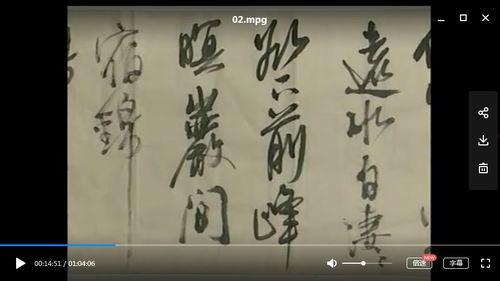 02.mpg
遠水自淒々
欲下前峰
暝巖間
宿錦
00:14:51 / 01:04:06
倍速
NEW
字幕